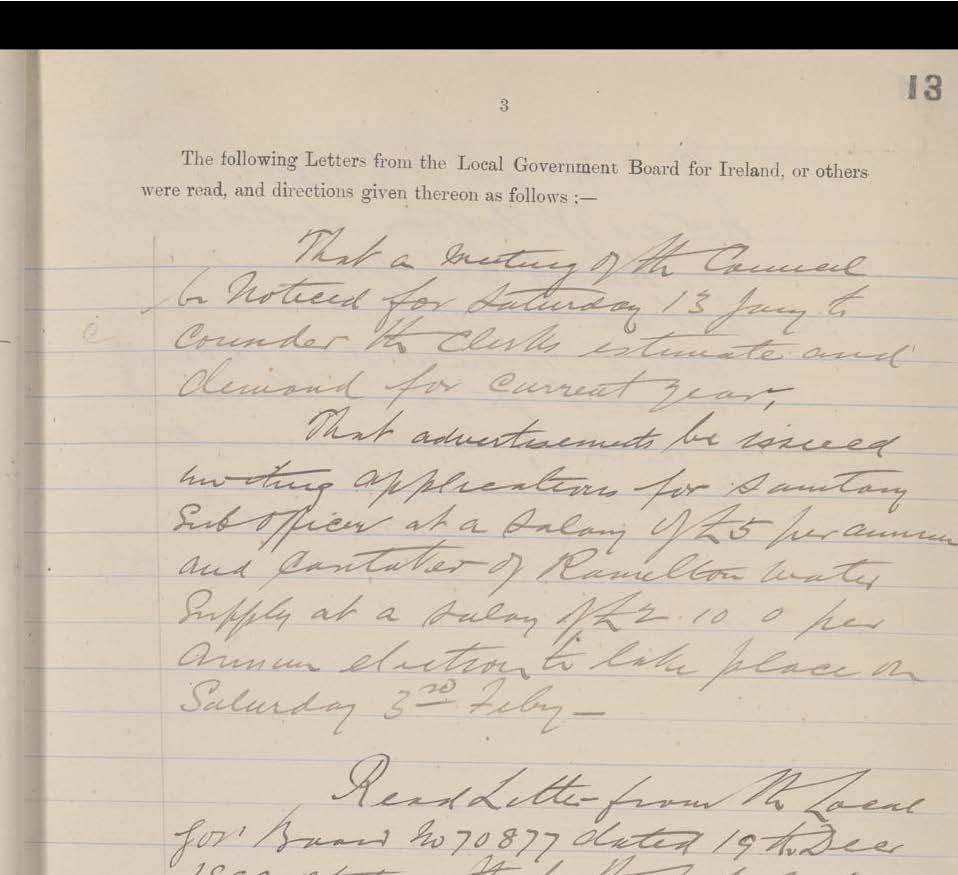 13
3
The following Letters from the Local Government Board for Ireland, or others
were read, and directions given thereon as follows :—
That a meeting of the Council
be Noticed for Saturday 13 Jany to
Consider the Clerks estimate and
demand for current year,
That advertisements be issued
inviting applications for Sanitary
Sub Officer at a Salary of £5 per annum
and Caretaker of Ramelton Water
Supply at a salary of £2.10 0 per
annum election to take place on
Saturday 3rd Feby—
Read Letter from the Local
Govt Board No 70877 dated 19th Decr